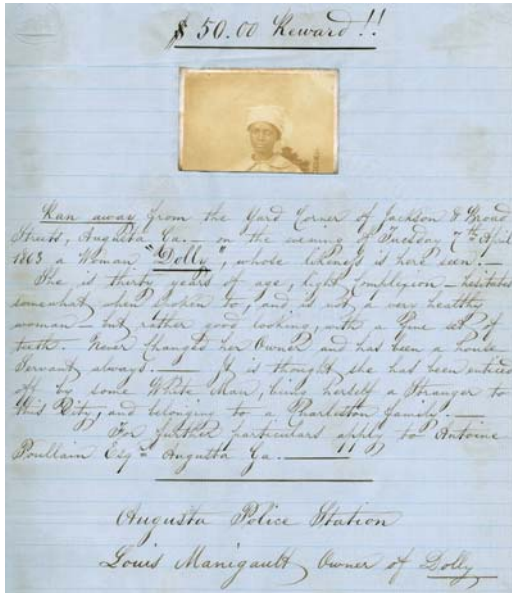 $ 50.00 Reward!!
Ran away from the Yard Corner of Jackson & Broad
Streets, Augusta Ga. — on the evening of Tuesday 7th April
1863 a Woman "Dolly", whose likeness is here seen. —
She is thirty years of age, light Complexion — hesitates
somewhat when spoken to, and is not a very healthy
woman — but rather good looking, with a fine set of
teeth. Never changed her Owner and has been a house
Servant always. — It is thought she has been enticed
off by some White Man, being herself a Stranger to
this City, and belonging to a Charleston family. —
For further particulars apply to Antoine
Poullain Esqr Augusta Ga. —
Augusta Police Station
Louis Manigault Owner of Dolly